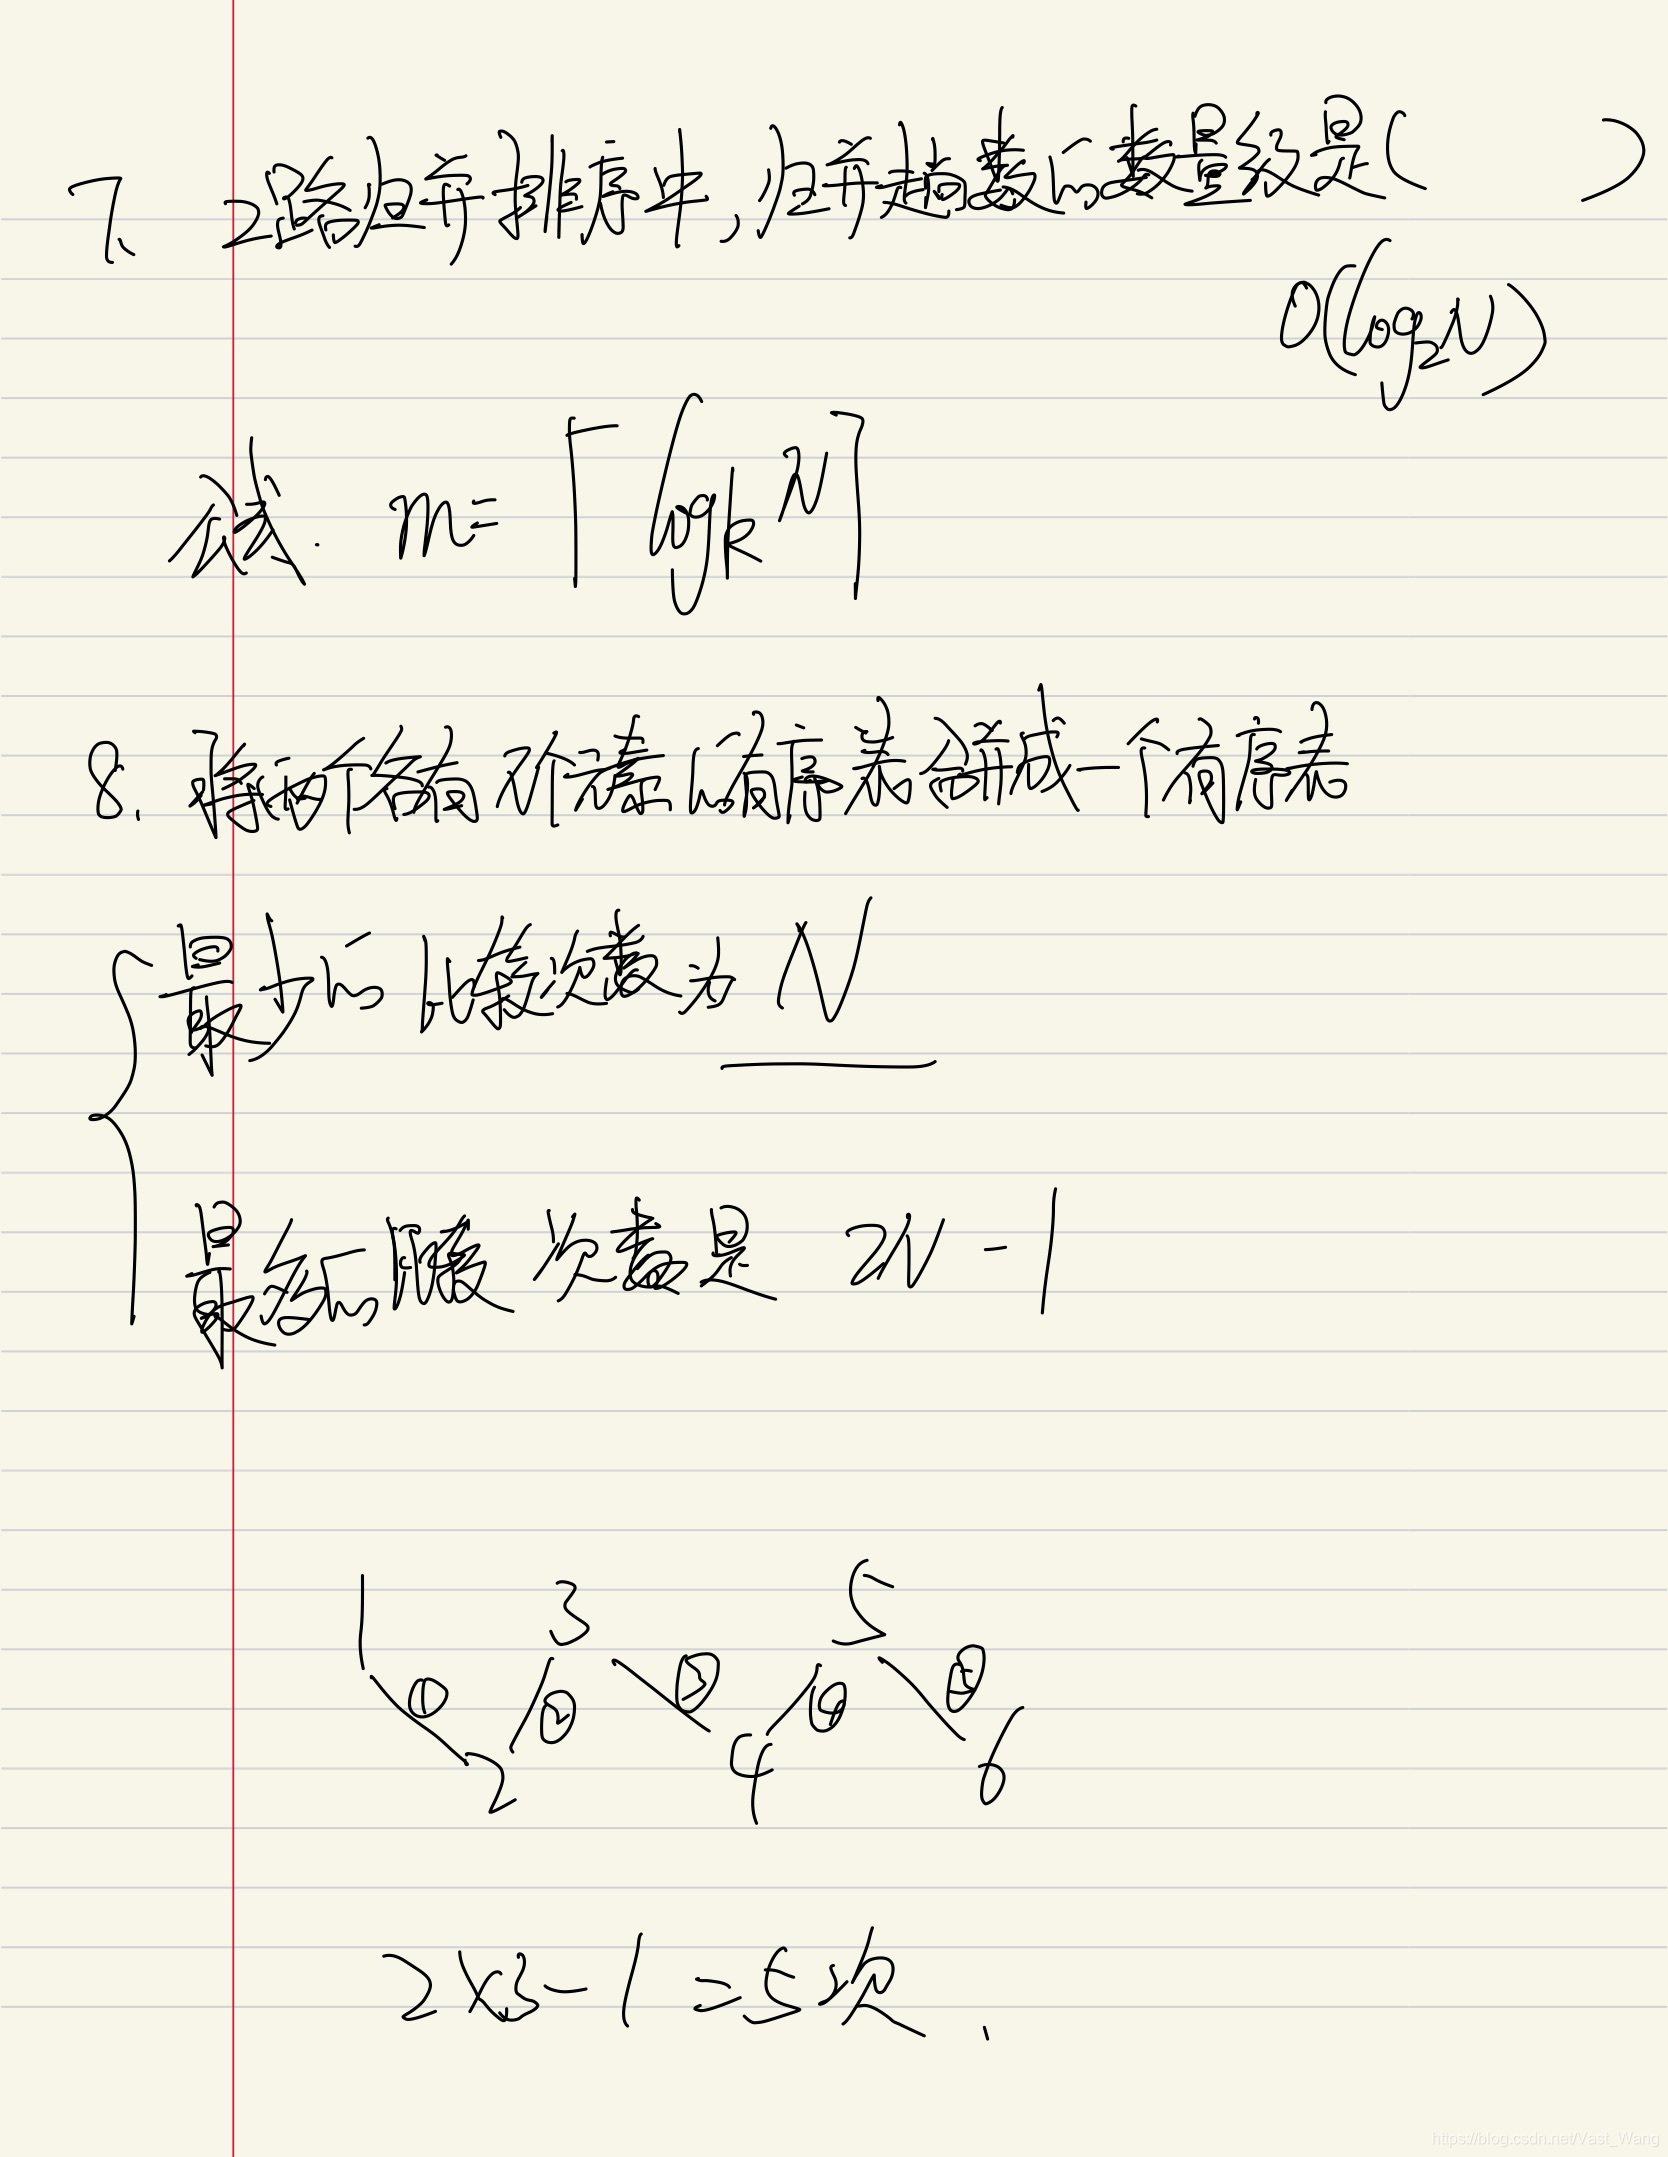 7、2路归并排序中,归并趟数的数量级是( )
O(log₂N)
公式. m=⌈logₖN⌉
8.将两个各有N个元素的有序表合并成一个有序表
最少的比较次数为 N
最多的比较次数是 2N-1
1 3 5
① ② ③ ④ ⑤
2 4 6
2×3-1=5次.
https://blog.csdn.net/Vast_Wang